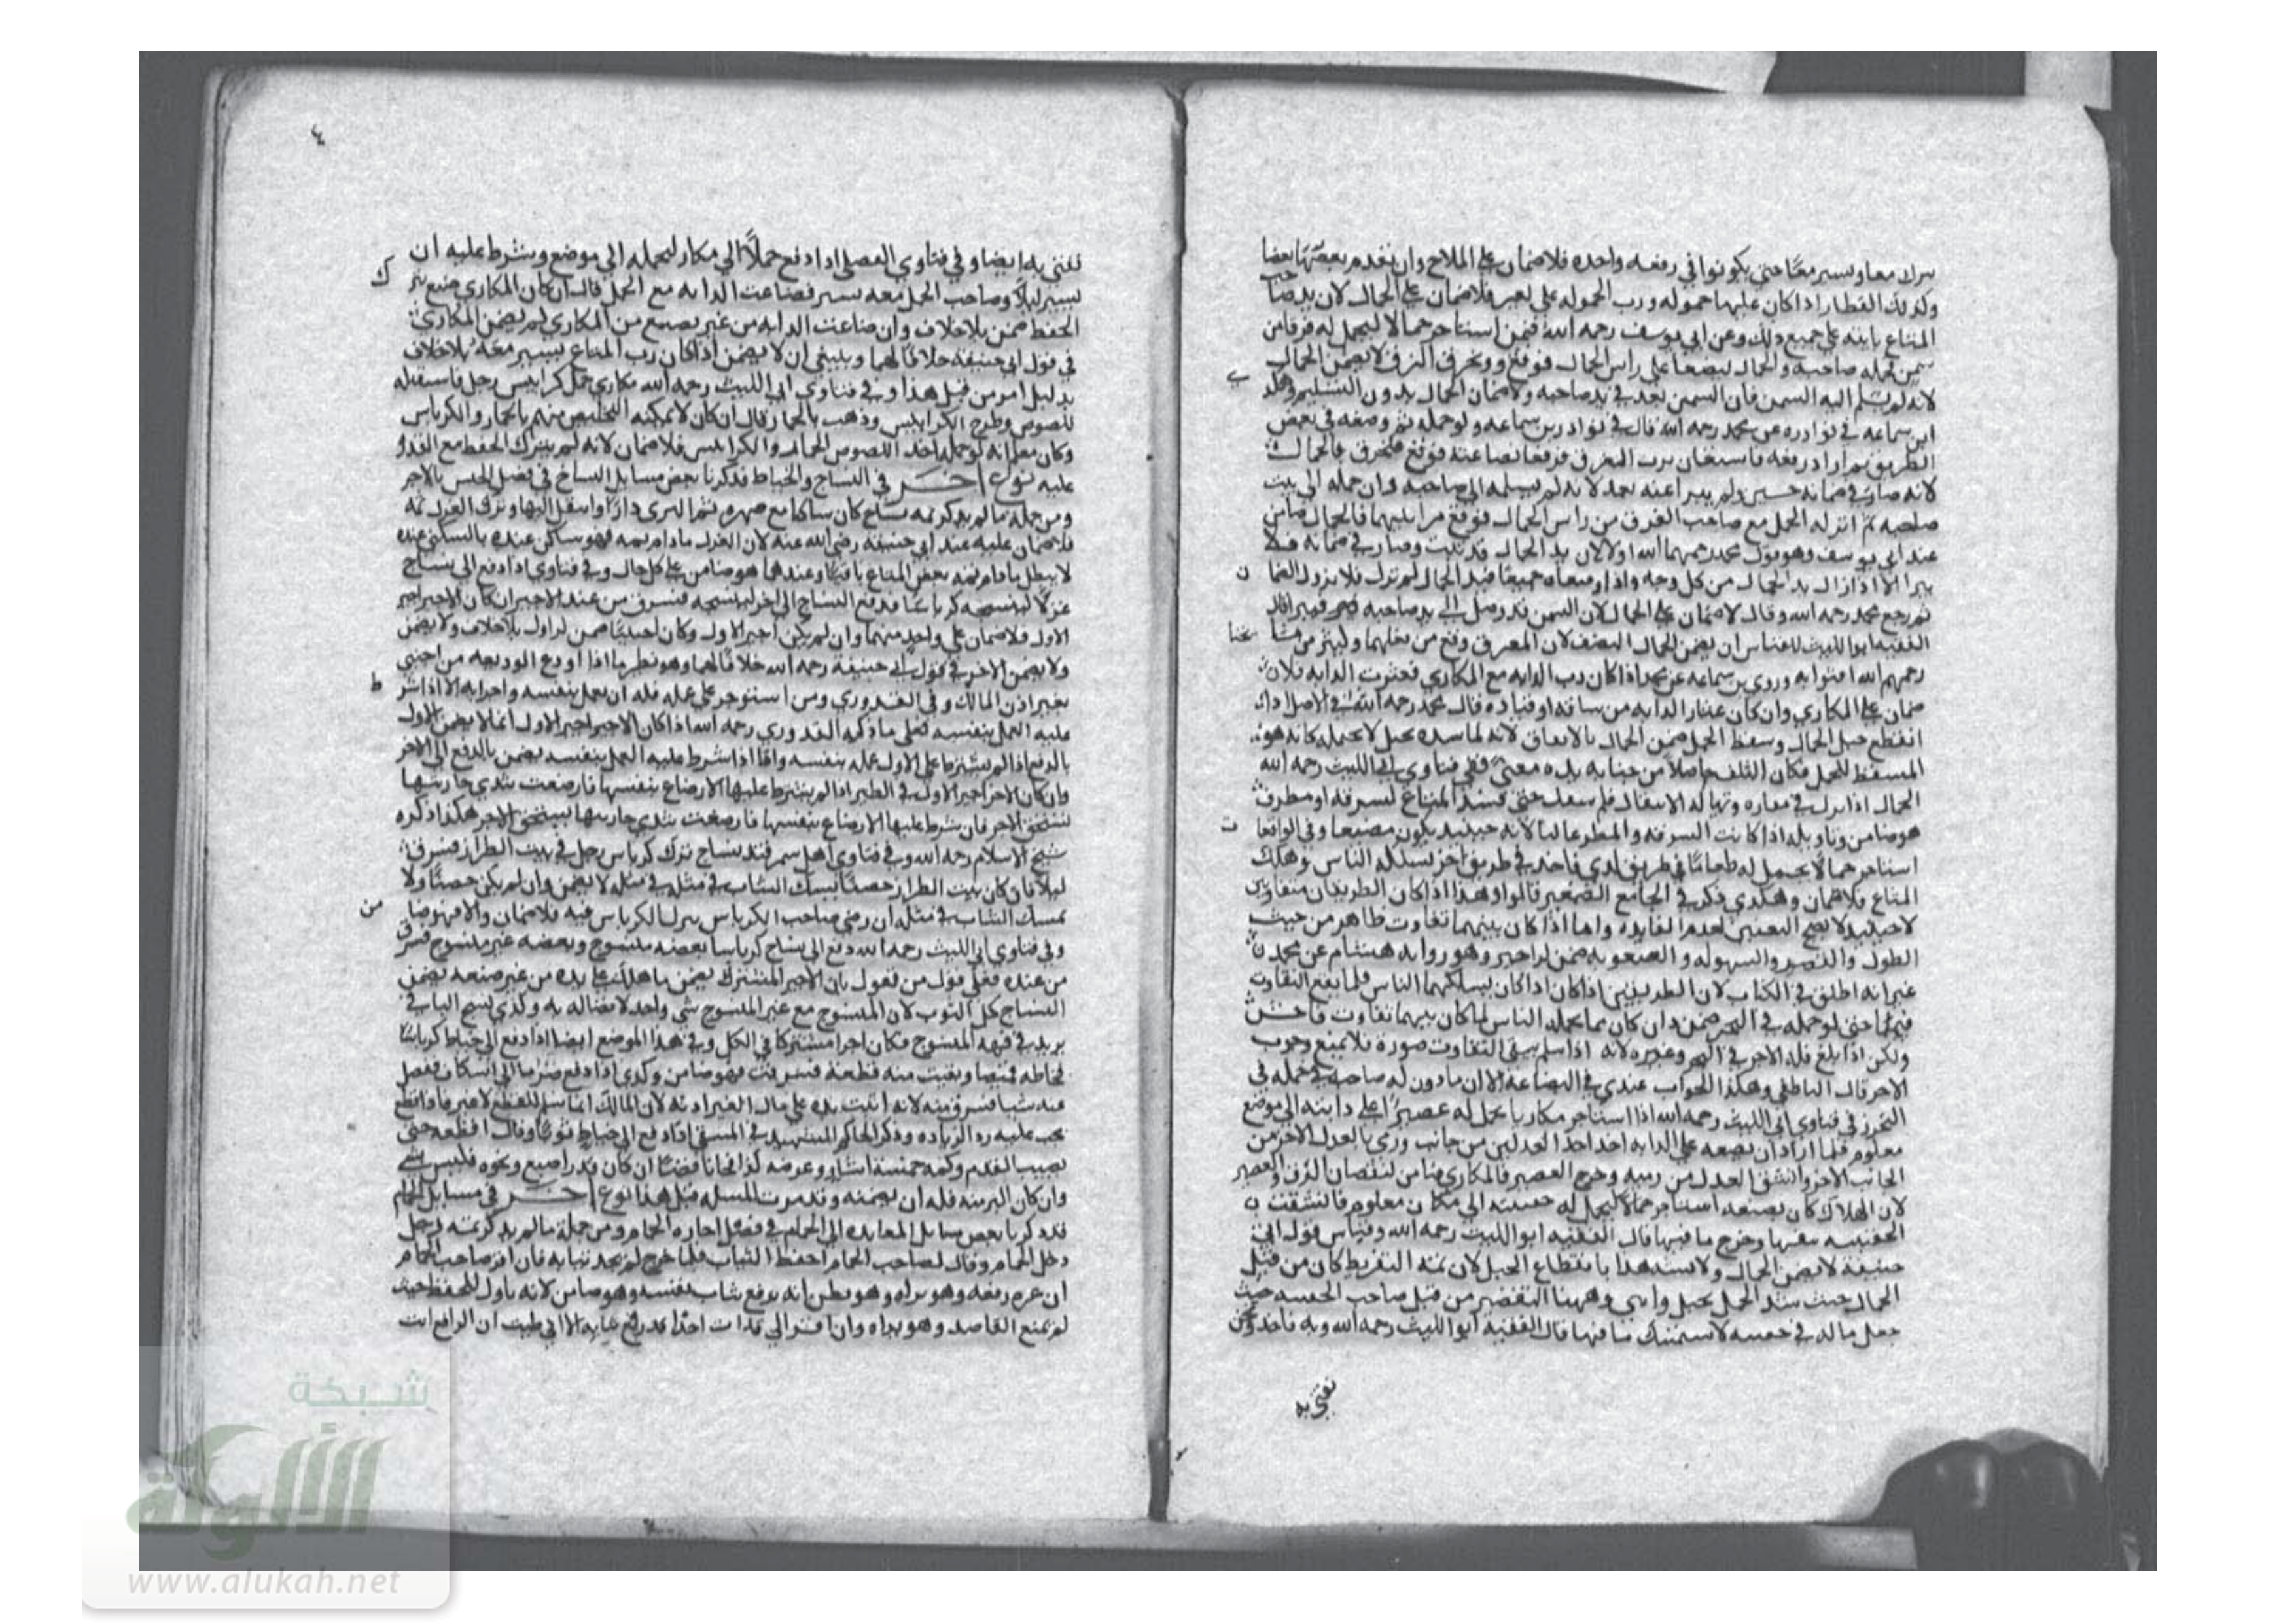 معا وتسير معًا حتى يكونوا في رفعه واحده فلا ضمان على الملاح وان تقدم بعضها بعضا
وكذلك القطار اذا كان عليها حموله ورب الحموله على بعير فلا ضمان على الحمال لان يد صاحب
المتاع ثابته على جميع ذلك وعن ابي يوسف رحمه الله فيمن استاجر حمالا ليحمل له فرقا من
سمن فحمله صاحبه والحمال ليضعا على راس الحمال فوقع وتخرق الزق لا يضمن الحمال
لانه لم يسلم اليه السمن فان السمن بعد في يد صاحبه ولا ضمان الحمال بدون التسليم
ابن سماعه في نوادره عن محمد رحمه الله قال في نوادر بن سماعه ولو حمله ثم وضعه في بعض
الطريق ثم اراد رفعه فاستعان برب الزق فرفعا فوقع فتخرق فالحمال
لانه صار في ضمانه حين ولم يبرا عنه بعد لانه لم يسلمه الى صاحبه وان حمله الى بيت
صاحبه ثم انزله الحمل مع صاحب الفرق من راس الحمال فوقع من ايديهما فالحمال ضامن
عند ابي يوسف وهو قول محمد رحمهما الله اولا لان يد الحمال قد ثبتت وصار في ضمانه فلا
يبرا الا اذا زال يد الحمال من كل وجه واذا وضعاه جميعًا فيد الحمال لم تزل فلا يزول الضما
ثم رجع محمد رحمه الله وقال لا ضمان على الحمال لان السمن قد وصل الى يد صاحبه
الفقيه ابو الليث القياس ان يضمن الحمال النصف لان وقع من فعلهما وكثير من مشا يخنا
رحمهم الله افتوا به وروي بن سماعه عن محمد اذا كان رب الدابه مع المكاري فعثرت الدابه فلا
ضمان على المكاري وان كان عثار الدابه من ساقه او قياده قال محمد رحمه الله في الاصل اذا
انقطع حبل الحمال وسقط الحمل ضمن الحمال بالاتفاق لانه لما شده بحبل لا يحتمله كانه هو
المسقط للحمل فكان التلف حاصلا من جنايه يده معنىً وفي فتاوي ابي الليث رحمه الله
الحمال اذا نزل في مفازه وتهيا له الانتقال فلم ينتقل حتى فسد المتاع لسرقه او مطر
هو ضامن وتاويله اذا كانت السرقه والمطر غالبا لانه حينئذ يكون مضيعا وفي الواقعات
استاجر حمالا ليحمل له طعامًا في طريق كذي فاخذ في طريق اخر يسلكه الناس وهلك
المتاع فلا ضمان وهكذي ذكر في الجامع الصغير قالوا وهذا اذا كان الطريقان متقاربين
لا حينئذ لا يصح التعيين لعدم الفايده واما اذا كان بينهما تفاوت ظاهر من حيث
الطول والقصر والسهوله والصعوبه ضمن الاجير وهو روايه هشام عن محمد
غير انه اطلق في الكتاب لان الطريقين اذا كان يسلكهما الناس قلما يقع التفاوت
فيهما حتى لو حمله في البحر ضمن وان كان مما يحمله الناس لما كان بينهما تفاوت فاحش
ولكن اذا بلغ فله الاجر في البحر وغيره لانه اذا سلم يبقى التفاوت صورة فلا يمنع وجوب
الاجر قال الناطفي وهكذا الجواب عندي في البضاعة الا ان ماذون له صاحبه في حمله في
البحر في فتاوي ابي الليث رحمه الله اذا استاجر مكاريا يحمل له عصيرًا على دابته الى موضع
معلوم فلما اراد ان يضعه على الدابه اخذ احد العدلين من جانب ورمى بالعدل الاخر من
الجانب الاخر وانشق العدل من رميه وخرج العصير فالمكاري ضامن لنقصان الزق والعصير
لان الهلاك كان بصنعه استاجر حمالا ليحمل له حقيبته الى مكان معلوم فانشقت
الحقيبه بنفسها وخرج ما فيها قال الفقيه ابو الليث رحمه الله وقياس قول ابي
حنيفة لا يضمن الحمال ولا يشبه هذا بانقطاع الحبل لان ثمه التفريط كان من قبل
الحمال حيث شد الحمل بحبل واهي وههنا التقصير من قبل صاحب الحقيبه حيث
جعل ماله في حقيبه لا تستمسك ما فيها قال الفقيه ابو الليث رحمه الله وبه ناخذ ونحن
نفتي به
٤
نفتي به ايضا وفي فتاوي الفضلي اذا دفع حملًا الى مكار ليحمله الى موضع وشرط عليه ان
يسير ليلا وصاحب الحمل معه يسير فضاعت الدابه مع الحمل قال ان كان المكاري ضيع بترك
الحفظ ضمن بلا خلاف وان ضاعت الدابه من غير تضييع من المكاري لم يضمن المكاري
في قول ابي حنيفه خلافًا لهما وينبغي ان لا يضمن اذا كان رب المتاع يسير معه بلا خلاف
بدليل ما مر من قبل هذا وفي فتاوي ابي الليث رحمه الله مكاري حمل كرابيس رجل فاستقبله
اللصوص وطرح الكرابيس وذهب بالحمار قال ان كان لا يمكنه التخليص منهم بالحمار والكرباس
وكان يعلم انه لو حمله اخذ اللصوص الحمار والكرابيس فلا ضمان لانه لم يترك الحفظ مع القدرة
عليه نوع اخـــر في النساج والخياط قد ذكرنا بعض مسايل النساج في فصل الحبس بالاجر
ومن جملة ما لم يذكر ثمه نساج كان ساكنا مع صهره ثم اكترى دارًا وانتقل اليها وترك الغزل ثمه
فلا ضمان عليه عند ابي حنيفة رضي الله عنه لان الغزل ما دام ثمه فهو ساكن عنده بالسكنى عنده
لا يبطل ما دام ثمه بعض المتاع باقيًا وعندهما هو ضامن على كل حال وفي فتاوي اذا دفع الى نساج
غزلًا لينسجه كرباسًا فدفع النساج الى اخر لينسجه فسرق من عند الاجير ان كان الاجير اجير
الاول فلا ضمان على واحد منهما وان لم يكن اجير الاول وكان اجنبيًا ضمن الاول بلا خلاف ولا يضمن
ولا يضمن الاخر في قول ابي حنيفة رحمه الله خلافًا لهما وهو نظير ما اذا اودع الوديعه من اجنبي
بغير اذن المالك وفي القدوري ومن استوجر على عمله فله ان يعمل بنفسه واجرايه الا اذا شرط
عليه العمل بنفسه فعلى ما ذكره القدوري رحمه الله اذا كان الاجير اجير الاول انما لا يضمن الاول
بالدفع اذا لم يشترط على الاول عمله بنفسه واما اذا شرط عليه العمل بنفسه يضمن بالدفع الى الاخر
وان كان الاخر اجير الاول في الظير اذا لم يشترط عليها الارضاع بنفسها فارضعت بثدي جاريتها
تستحق الاجر فان شرط عليها الارضاع بنفسها فارضعت بثدي جاريتها تستحق الاجر هكذا ذكره
شيخ الاسلام رحمه الله وفي فتاوي اهل سمرقند نساج ترك كرباس رجل في بيت الطراز فسرق
ليلًا فان كان بيت الطراز حصينًا يمسك الثياب في مثله لا يضمن وان لم يكن حصينًا ولا
تمسك الثياب في مثله ان رضي صاحب الكرباس بترك الكرباس فيه فلا ضمان والا فهو ضامن
وفي فتاوي ابي الليث رحمه الله دفع الى نساج كرباسا بعضه منسوج وبعضه غير منسوج فسرق
من عنده فعلى قول من يقول بان الاجير المشترك يضمن ما هلك على يده من غير صنعه يضمن
النساج كل الثوب لان المنسوج مع غير المنسوج شي واحد لاتصاله به وكذي نسج الباقي
يزيد في قيمه المنسوج فكان اجيرا مشتركا في الكل وفي هذا الموضع ايضا اذا دفع الى خياط كرباسًا
فخاطه قميصا وبقيت منه قطعة فسرقت فهو ضامن وكذي اذا دفع صرمًا الى اسكاف ففضل
منه شيا فسرق منه لانه اثبت يده على مال الغير بلا اذنه لان المالك انما سلم للقطع لا غير فاذا قطع
يجب عليه رد الزياده وذكر الحاكم الشهيد في المنتقى اذا دفع الى خياط ثوبًا وقال اقطعه حتى
يصيب القدم وكمه خمسة اشبار وعرضه كذا فجا ناقصًا ان كان قدر اصبع ونحوه فليس بشي
وان كان اكثر منه فله ان يضمنه وقد مرت المسله قبل هذا نوع اخـــر في مسايل الحمام
قد ذكرنا بعض مسايل العايده الى الحمام في فصل اجاره الحمام ومن جملة ما لم يذكر ثمه رجل
دخل الحمام وقال لصاحب الحمام احفظ الثياب فلما خرج لم يجد ثيابه فان اقر صاحب الحمام
ان غيره رفعه وهو يراه وهو يظن انه يرفع ثياب نفسه وهو ضامن لانه تارك للحفظ حيث
لم يمنع القاصد وهو يراه وان اقر اني رايت احدًا قد رفع ثيابه الا اني ظننت ان الرافع انت
ك
ط
من
ن
شبكة
الألوكة
www.alukah.net